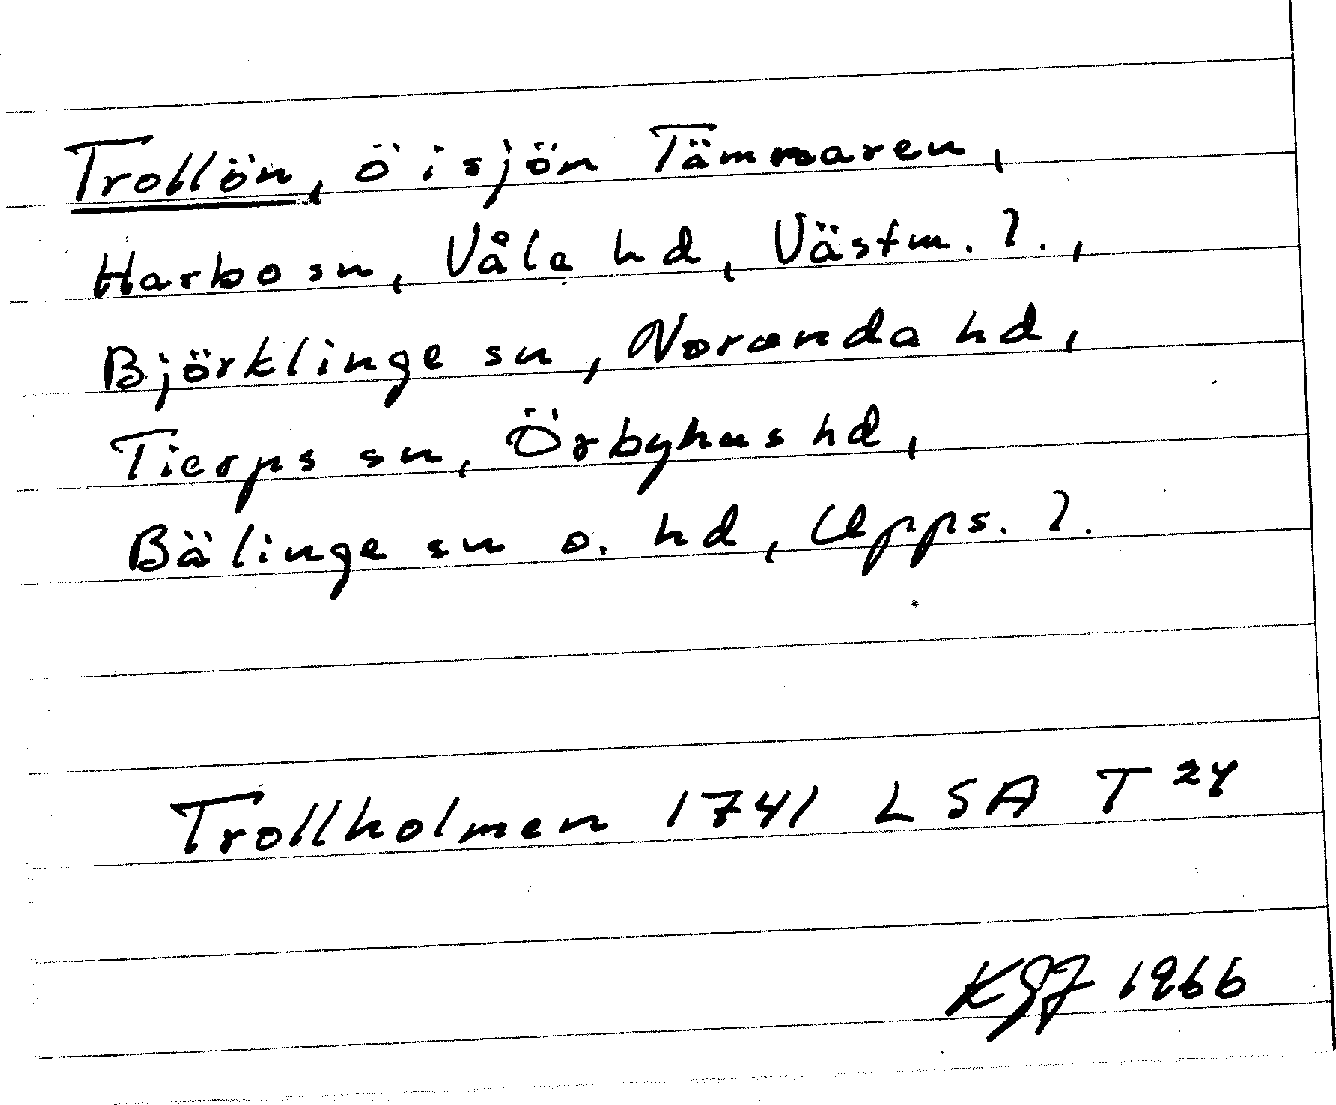 Trollön, ö i sjön Tämnaren,
Harbo sn, Våla hd, Västm. l.,
Björklinge sn, Norunda hd,
Tierps sn, Örbyhus hd,
Bälinge sn o. hd, Upps. l.
Trollholmen 1741 LSA T 24
KGJ 1966